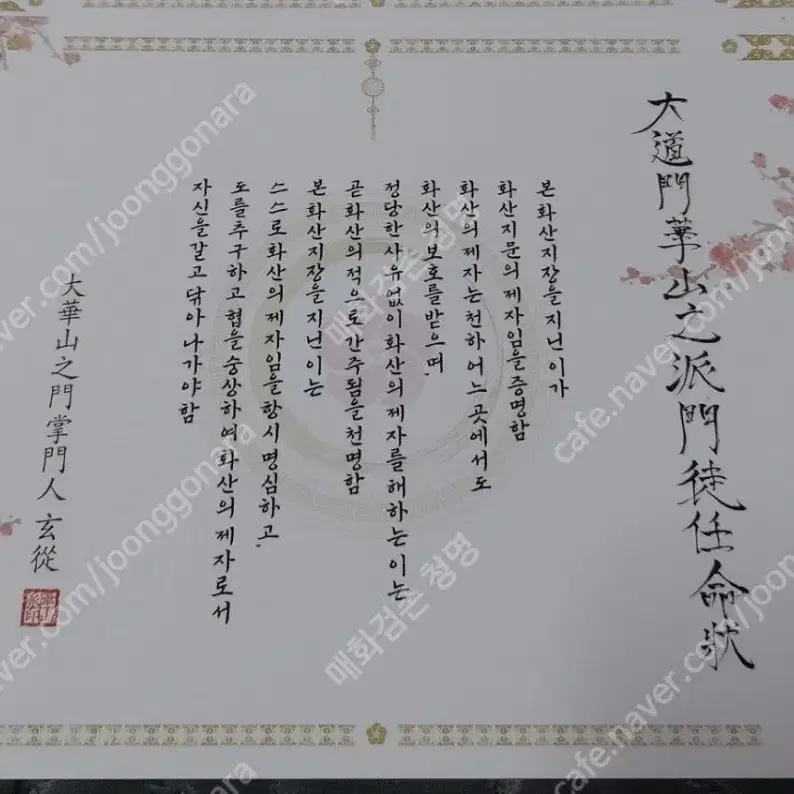 大道門華山之派門徒任命狀
본 화산지장을 지닌 이가
화산지문의 제자임을 증명함
화산의 제자는 천하 어느 곳에서도
화산의 보호를 받으며
정당한 사유 없이 화산의 제자를 해하는 이는
곧 화산의 적으로 간주됨을 천명함
본 화산지장을 지닌 이는
스스로 화산의 제자임을 항시 명심하고
도를 추구하고 협을 숭상하여 화산의 제자로서
자신을 갈고 닦아 나가야 함
大華山之門掌門人 玄從
cafe.naver.com/joonggonara
매화검존 청명
매화검존 청명